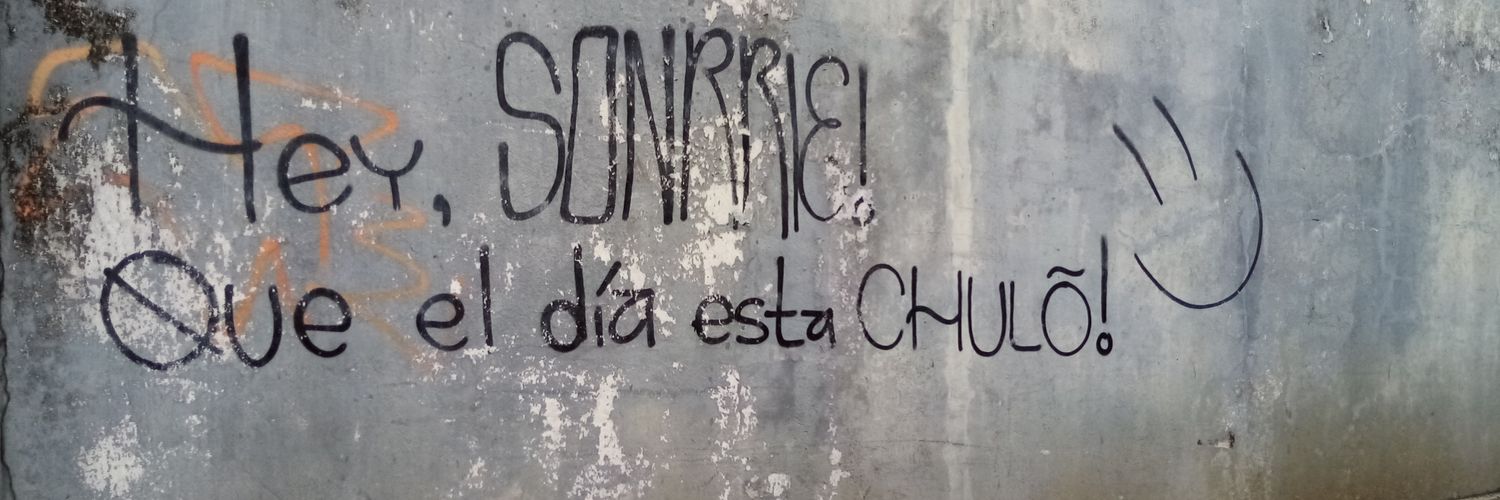 Hey, SONRRIE!
Que el día esta CHULÕ!